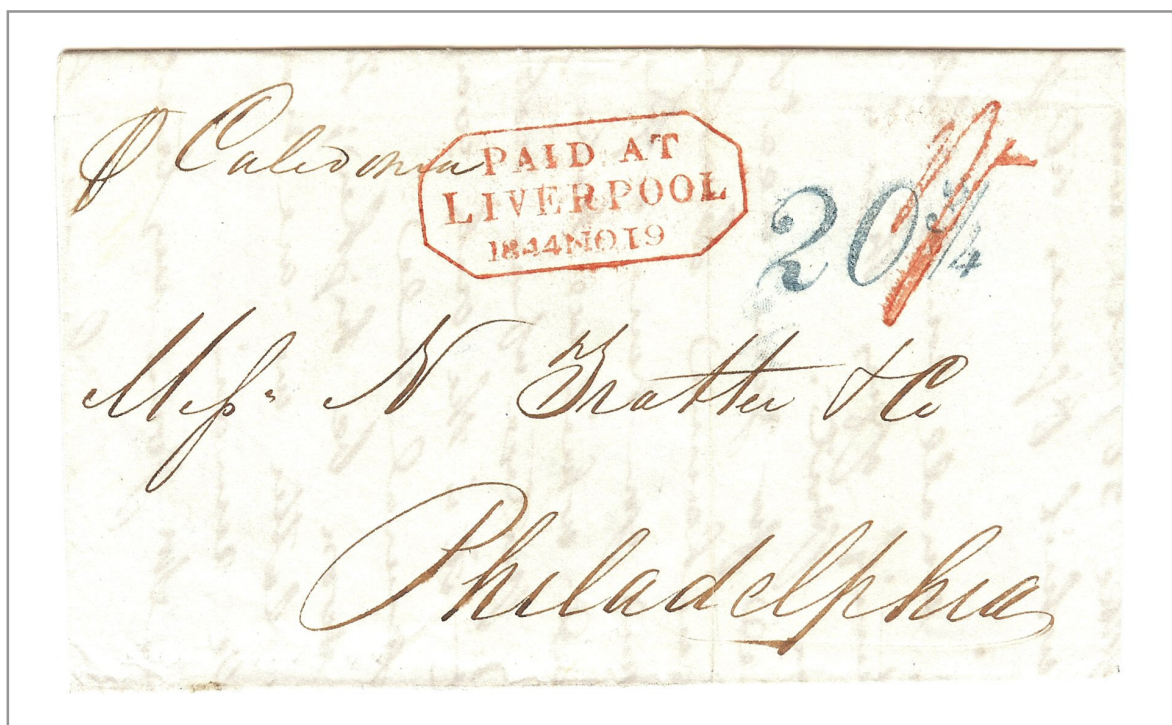 p Caledonia
PAID AT
LIVERPOOL
1844 NO 19
20 3/4
1/-
Messrs N Trotter & Co
Philadelphia